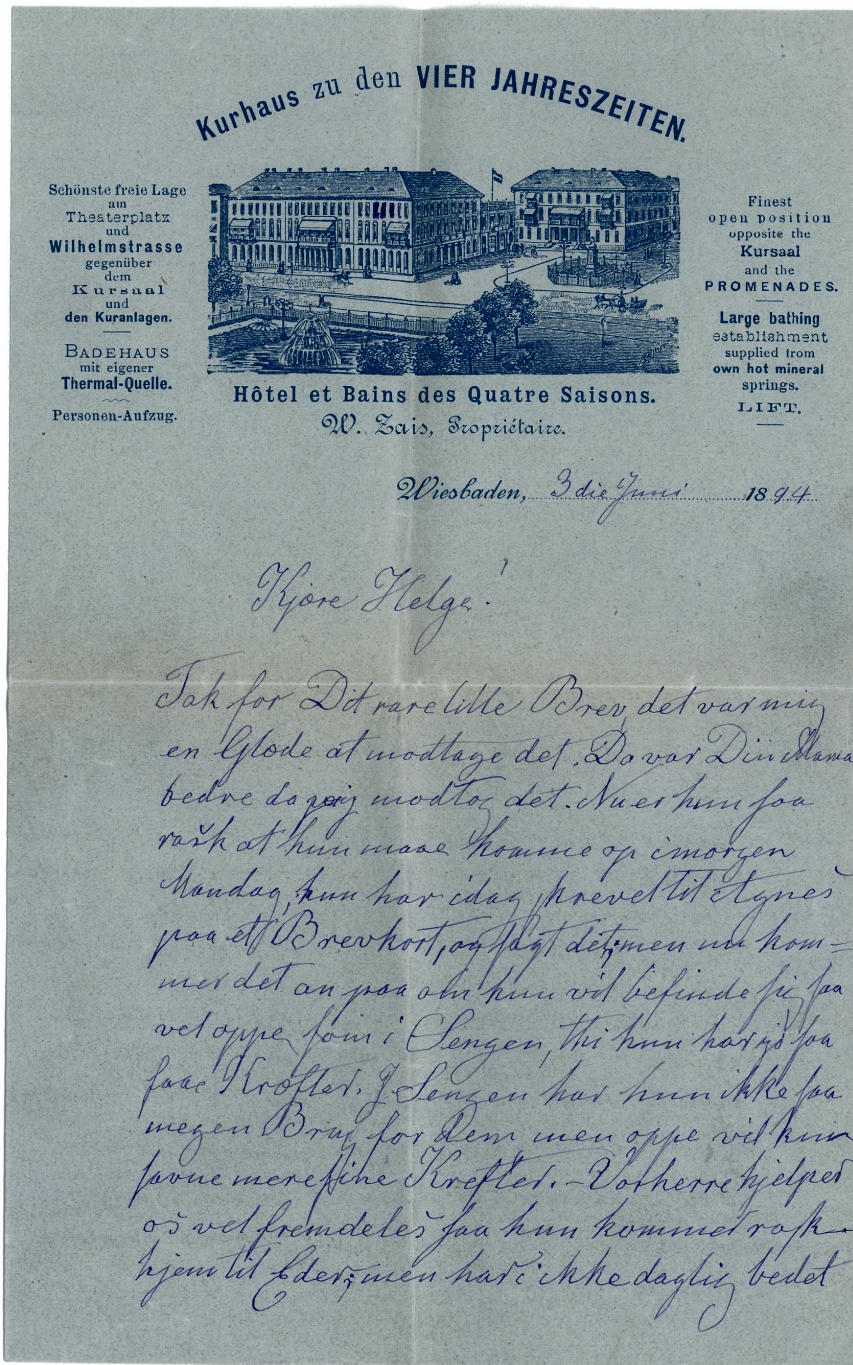 Kurhaus zu den VIER JAHRESZEITEN.
Schönste freie Lage
am
Theaterplatz
und
Wilhelmstrasse
gegenüber
dem
Kursaal
und
den Kuranlagen.
BADEHAUS
mit eigener
Thermal-Quelle.
Personen-Aufzug.
Finest
open position
opposite the
Kursaal
and the
PROMENADES.
Large bathing
establishment
supplied from
own hot mineral
springs.
LIFT.
Hôtel et Bains des Quatre Saisons.
W. Zais, Propriétaire.
Wiesbaden, 3 die Juni 1894
Kjære Helge!
Tak for Dit rare lille Brev, det var mig
en Glæde at modtage det. Da var Din Mama
bedre da jeg modtog det. Nu er hun saa
rask at hun maae komme op imorgen
Mandag, hun har idag skrevet til Agnes
paa et Brevkort, og sagt det; men nu kom=
mer det an paa om hun vil befinde sig saa
vel oppe som i Sengen, thi hun har jo saa
faae Kræfter. I Sengen har hun ikke saa
megen Brug for dem men oppe vil hun
savne mere sine Krefter. – Vorherre hjelper
os vel fremdeles saa hun kommer rask
hjem til Eder; men har i ikke daglig bedet